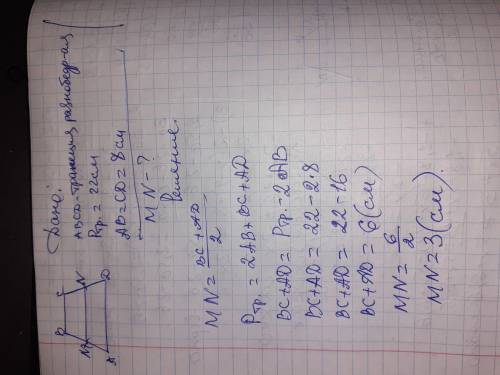 Дано:
ABCD-трапеция равнобедр-ая
Pтр. = 22см
AB=CD=8см
MN-?
Решение.
B C
M N
A D
MN = BC+AD / 2
Pтр. = 2AB+BC+AD
BC+AD = Pтр.-2AB
BC+AD = 22-2·8
BC+AD = 22-16
BC+AD = 6(см)
MN = 6 / 2
MN=3(см).